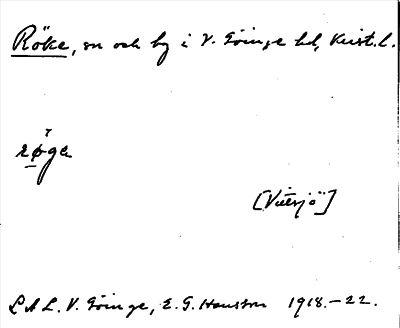 Röke, sn och by i V. Göinge hd, Krist. l.
rø̄̌ga
[Vittsjö]
LAL. V. Göinge, E. G. Hansson 1918.-22.